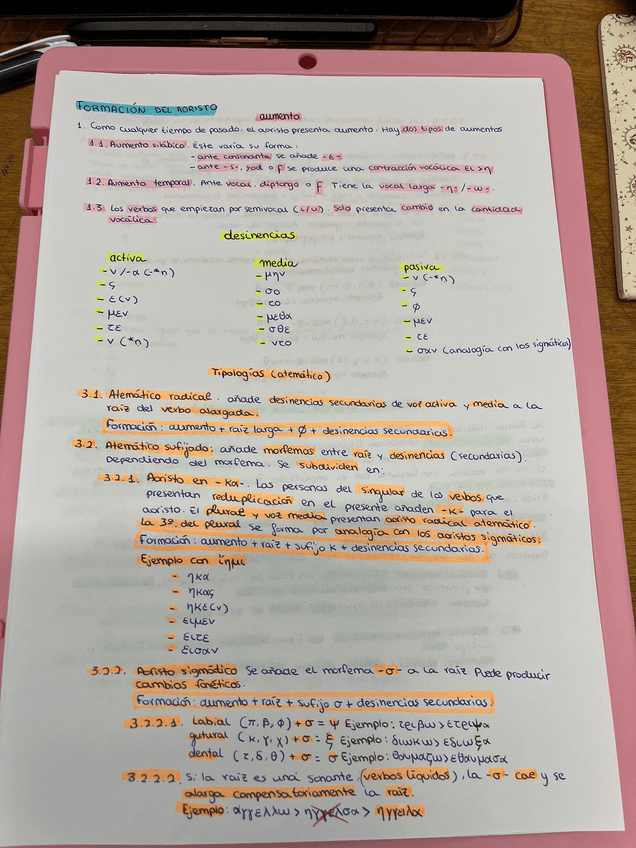 FORMACIÓN DEL AORISTO
aumento
1. Como cualquier tiempo de pasado, el aoristo presenta aumento. Hay dos tipos de aumentos
1.1. Aumento silábico. Este varía su forma:
- ante consonante se añade -ε-
- ante -s-, yod o F se produce una contracción vocálica εε>η
1.2. Aumento temporal. Ante vocal, diptongo o F. Tiene la vocal larga -η- / -ω-.
1.3. Los verbos que empiezan por semivocal (ι/υ). Solo presenta cambio en la cantidad
vocálica.
desinencias
activa
- ν / -α (-*n)
- ς
- ε(ν)
- μεν
- τε
- ν (*n)
media
- μην
- σο
- το
- μεθα
- σθε
- ντο
pasiva
- ν (-*n)
- ς
- φ
- μεν
- τε
- σαν (analogía con los sigmáticos)
Tipologías (atemático)
3.1. Atemático radical: añade desinencias secundarias de voz activa y media a la
raíz del verbo alargada.
Formación: aumento + raíz larga + φ + desinencias secundarias.
3.2. Atemático sufijado: añade morfemas entre raíz y desinencias (secundarias).
Dependiendo del morfema. Se subdividen en:
3.2.1. Aoristo en -κα-. Las personas del singular de los verbos que
presentan reduplicación en el presente añaden -κ- para el
aoristo. El plural y voz media presentan aoristo radical atemático.
La 3ª del plural se forma por analogía con los aoristos sigmáticos.
Formación: aumento + raíz + sufijo κ + desinencias secundarias.
Ejemplo con ἵημι
- ηκα
- ηκας
- ηκε(ν)
- ειμεν
- ειτε
- εισαν
3.2.2. Aoristo sigmático Se añade el morfema -σ- a la raíz. Puede producir
cambios fonéticos.
Formación: aumento + raíz + sufijo σ + desinencias secundarias.
3.2.2.1. labial (π, β, φ) + σ = ψ Ejemplo: τριβω > ετριψα
gutural (κ, γ, χ) + σ = ξ Ejemplo: διωκω > εδιωξα
dental (τ, δ, θ) + σ = σ Ejemplo: θαυμαζω > εθαυμασα
3.2.2.2. Si la raíz es una sonante (verbos líquidos), la -σ- cae y se
alarga compensatoriamente la raíz.
Ejemplo: αγγελλω > ηγγελσα > ηγγειλα